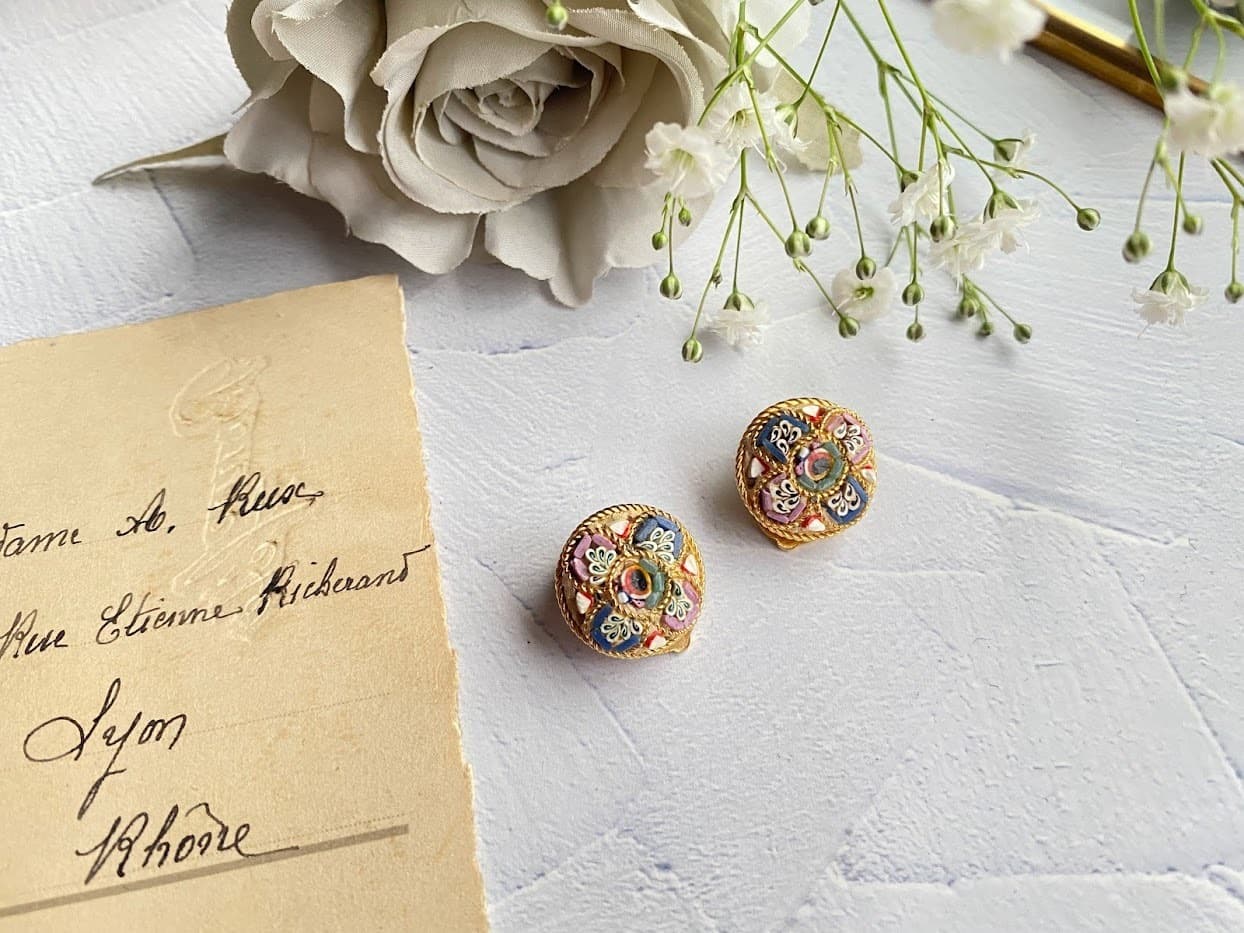 dame A. Rux
Rue Etienne Richerand
Lyon
Rhône